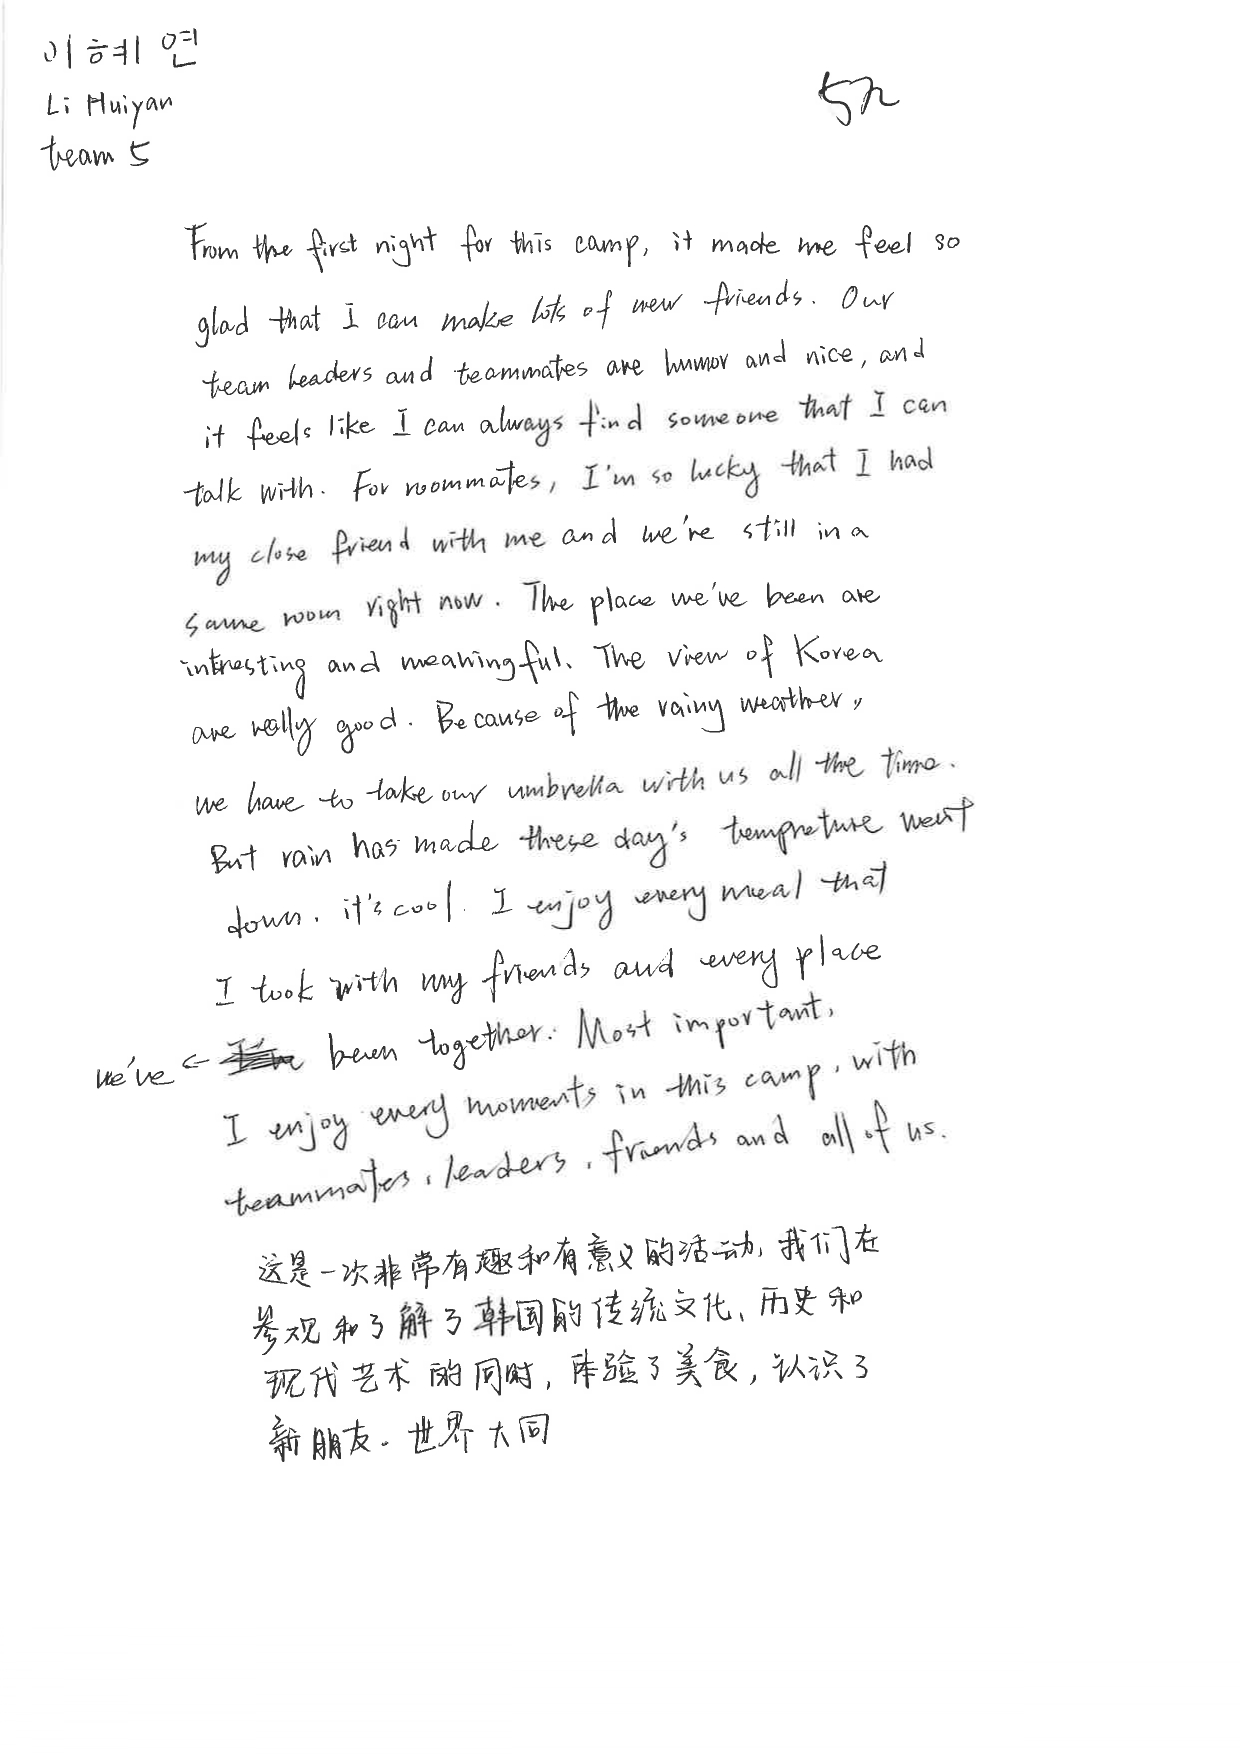 이혜연
Li Huiyan
team 5
5조
From the first night for this camp, it made me feel so
glad that I can make lots of new friends. Our
team leaders and teammates are humor and nice, and
it feels like I can always find someone that I can
talk with. For roommates, I'm so lucky that I had
my close friend with me and we're still in a
same room right now. The place we've been are
intresting and meaningful. The view of Korea
are really good. Because of the rainy weather,
we have to take our umbrella with us all the time.
But rain has made these day's temprature went
down. it's cool. I enjoy every meal that
I took with my friends and every place
we've ← been together. Most important,
I enjoy every moments in this camp, with
teammates, leaders, friends and all of us.
这是一次非常有趣和有意义的活动, 我们在
参观和了解了韩国的传统文化、历史和
现代艺术的同时, 体验了美食, 认识了
新朋友. 世界大同